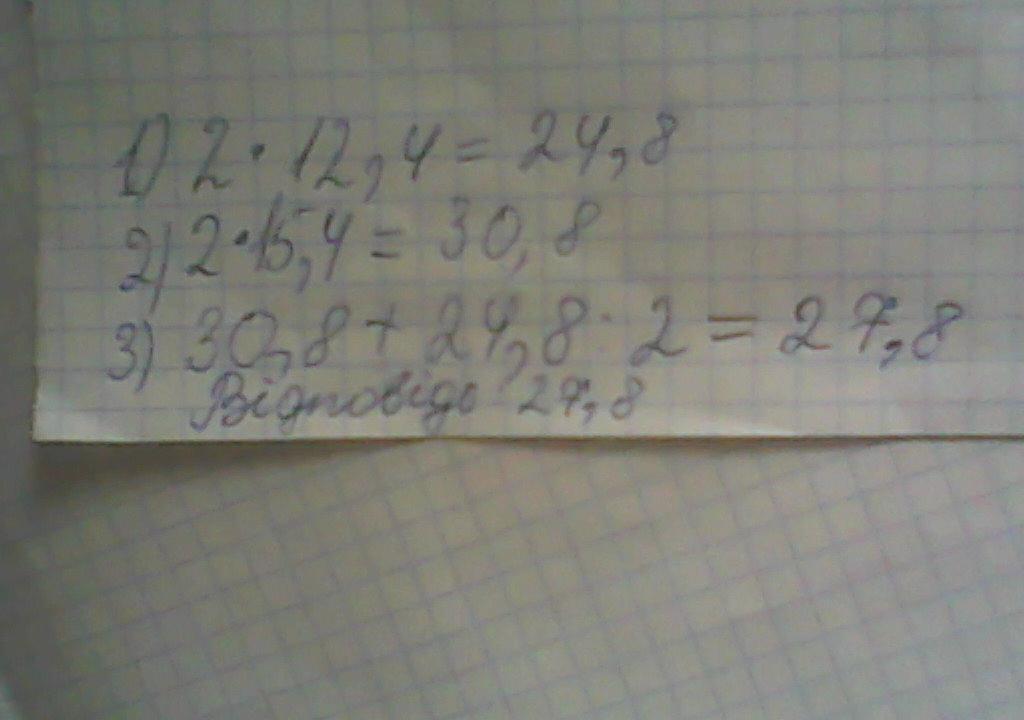 1) 2 · 12,4 = 24,8
2) 2 · 15,4 = 30,8
3) 30,8 + 24,8 : 2 = 27,8
Відповідь 27,8